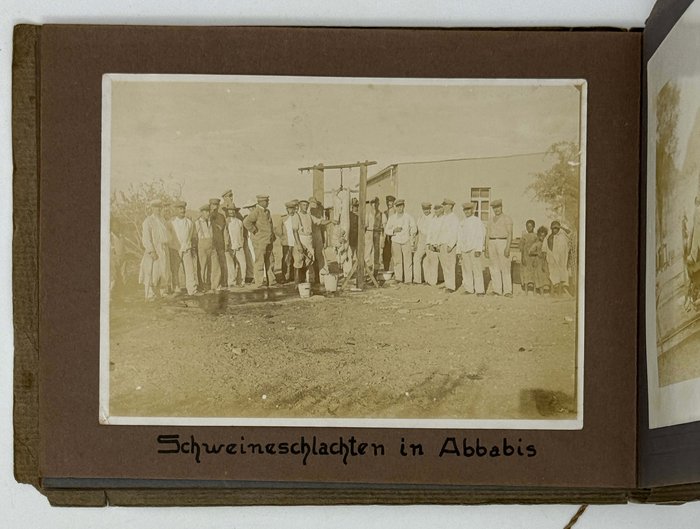 Schweineschlachten in Abbabis